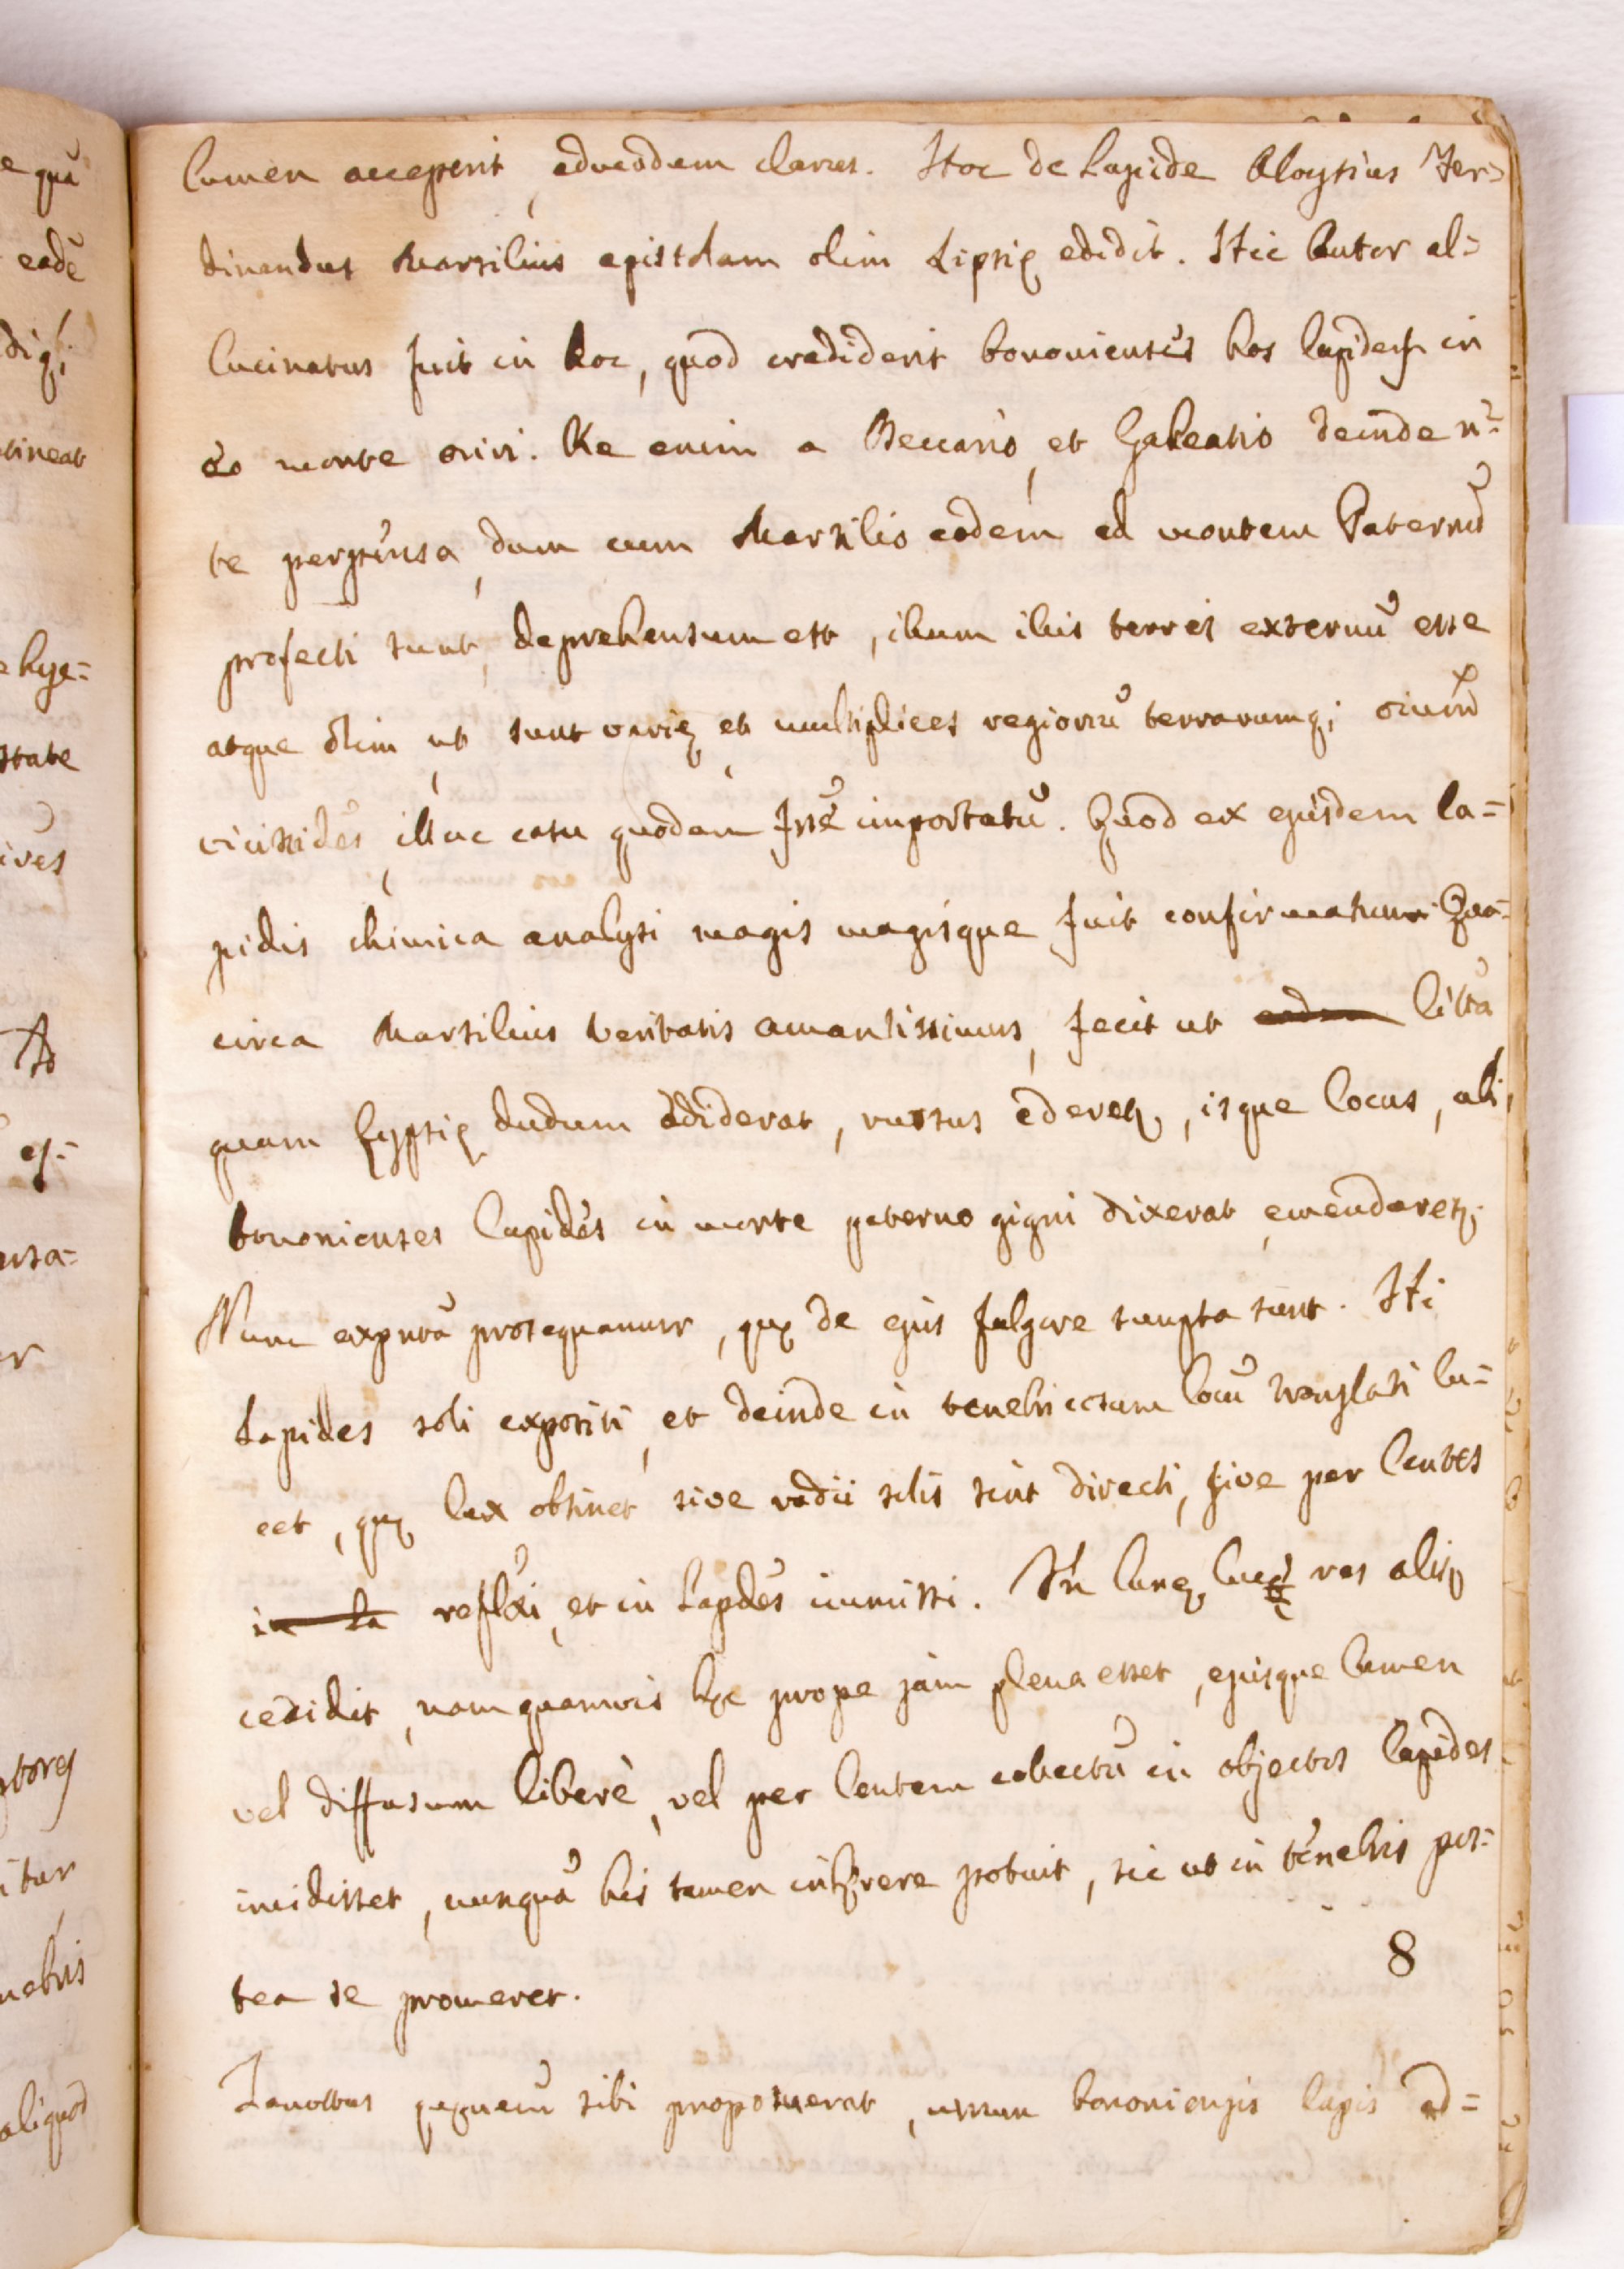 lumen acceperit, admodum clarus. Hoc de Lapide Aloysius Fer=
dinandus Marsilius epistolam olim Lipsię edidit. Hic Autor al=
lucinatus fuit in hoc, quod crediderit bononienses hos lapides in
eo monte oriri. Re enim a Beccario, et Galeatio deinde ri=
te perpensa, dum cum Marsilio eodem ad montem Paternū
profecti sunt, deprehensum est, illum illis terris externū esse
atque olim, ut sunt varię, et multiplices regionū terrarumq;
vicissitudes, illuc casu quodam fuisse importatū. Quod ex ejusdem la=
pidis chimica analysi magis magisque fuit confirmatum. Qua=
circa Marsilius veritatis amantissimus, fecit ut
quam Lypsię dudum ediderat, rursus ederet, isque locus, ubi
bononienses lapides in monte paterno gigni dixerat, emendaret.
Nunc prosequamur, quę de ejus fulgore sumpta sunt. Hi
Lapides soli expositi, et deinde in tenebricosum locū translati lu=
cet, quę lex obtinet sive radii solis sint directi, sive per lentes
reflexi, et in Lapides immissi. In lunę luce res aliter
cecidit, nam quamvis hęc prope jam plena esset, ejusque lumen
vel diffusum liberè, vel per lentem collectū in objectos lapides
incidisset, nunquā his tamen inhęrere potuit, sic ut in tenebris pos=
tea se promeret.
8
Zanottus quęsitum sibi proposuerat, utrum bononiensis lapis ad=
e quā
eadē
tineat
hye=
state
ives
usa=
itur
nebris
aliquod